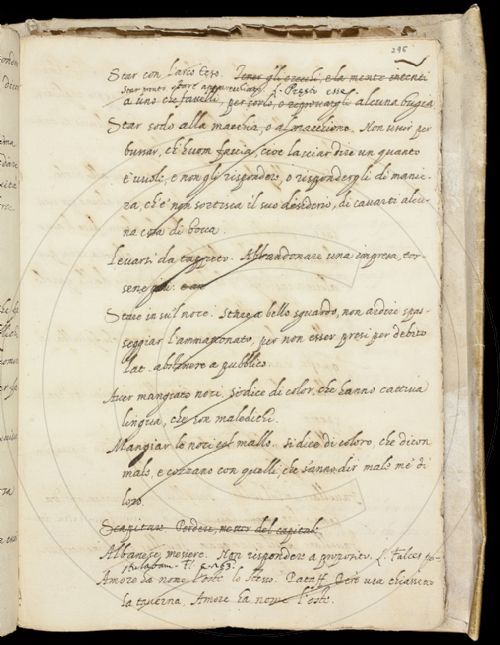 296
Star con l'arco teso. Tener gli orecchi, e la mente intenti
star pronto, et
a uno che favelli, per corlo, o riprovargli alcuna bugia
Star sodo alla macchia, o al macchione. Non uscir per
bussar, ch'huom faccia, cioè lasciar dire un quanto
e' vuole, e non gli rispondere, o rispondergli di manie-
ra, ch'e' non sortisca il suo desiderio, di cavarti alcu-
na cosa di bocca.
Levarsi da tappeto. Abbandonare una impresa, tor-
sene giù.
Stare in sul noce. Stare a bello sguardo, non ardire pas-
seggiar l'ammattonato, per non esser presi per debito
Lat. abstinere a publico
Aver mangiato noci, si dice di color, che hanno cattiva
lingua, che son maledichi.
Mangiar le noci col mallo. si dice di coloro, che dicon
male, e cozzano con quelli, che sanno dir male me' di
loro.
Scapitare. Perdere, metter del capitale
Albanese, messere. Non rispondere a proposito. L. Falces po-
stulabam. Fl.
Amore ha nome l'oste lo stesso. Pataff. Però usa chiasseno
la taverna, Amore ha nome l'oste.